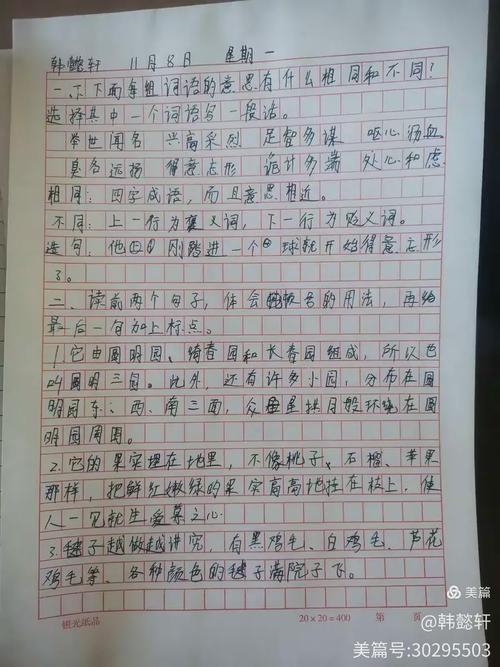 韩懿轩 11月8日 星期一
一、下面每组词语的意思有什么相同和不同?
选择其中一个词语写一段话。
举世闻名 兴高采烈 足智多谋 呕心沥血
臭名远扬 得意忘形 诡计多端 处心积虑
相同:四字成语,而且意思相近。
不同:上一行为褒义词,下一行为贬义词。
造句:他刚踏进一个球就开始得意忘形
了。
二、读前两个句子,体会顿号的用法,再给
最后一句加上标点。
1.它由圆明园、绮春园和长春园组成,所以也
叫圆明三园。此外,还有许多小园,分布在圆
明园东、西、南三面,众星拱月般环绕在圆
明园周围。
2.它的果实埋在地里,不像桃子、石榴、苹果
那样,把鲜红嫩绿的果实高高地挂在枝上,使
人一见就生爱慕之心。
3.毽子越做越讲究,有黑鸡毛、白鸡毛、芦花
鸡毛等、各种颜色的毽子满院子飞。
银光纸品 20×20=400 第 页
美篇
@韩懿轩
美篇号:30295503